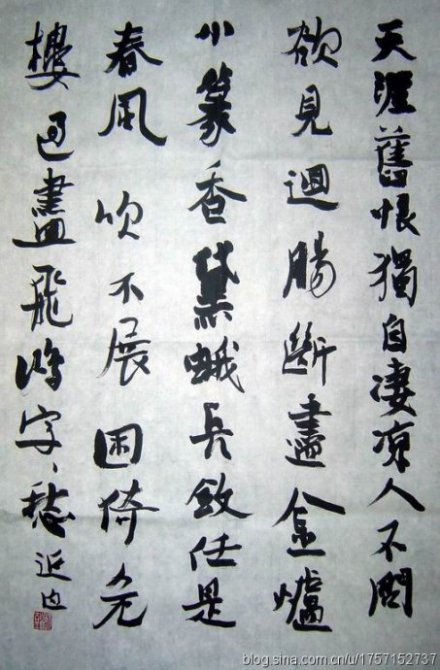 天涯舊恨獨自凄凉人不問
欲見迴腸斷盡金爐
小篆香黛蛾長斂任是
春風吹不展困倚危
樓過盡飛鴻字〻愁
blog.sina.com.cn/u/1757152737